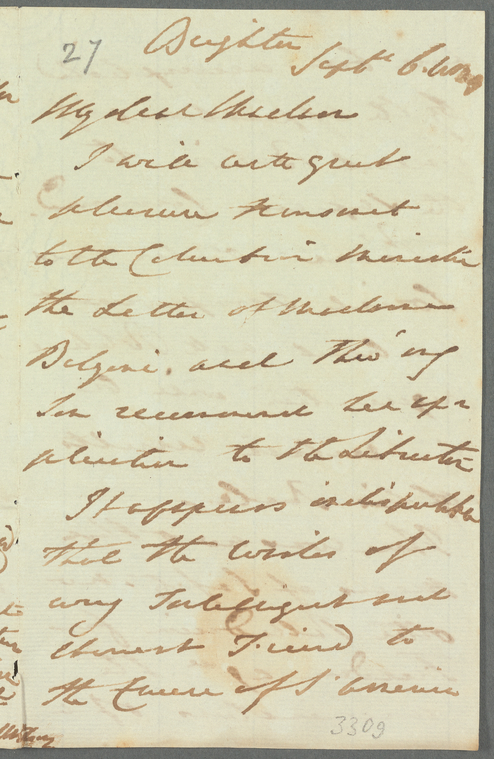 27 Brighton
Septr 6.
My dear Madam
I will with great
pleasure transmit
to the Columbian Minister
the Letter of Madame
Belzoni. and Tho' my
Son recommend her ap-
plication to the Liberator
It appears indisputable
that the Wishes of
every Intelligent and
Honest Friend to
the Cause of S' America
3309